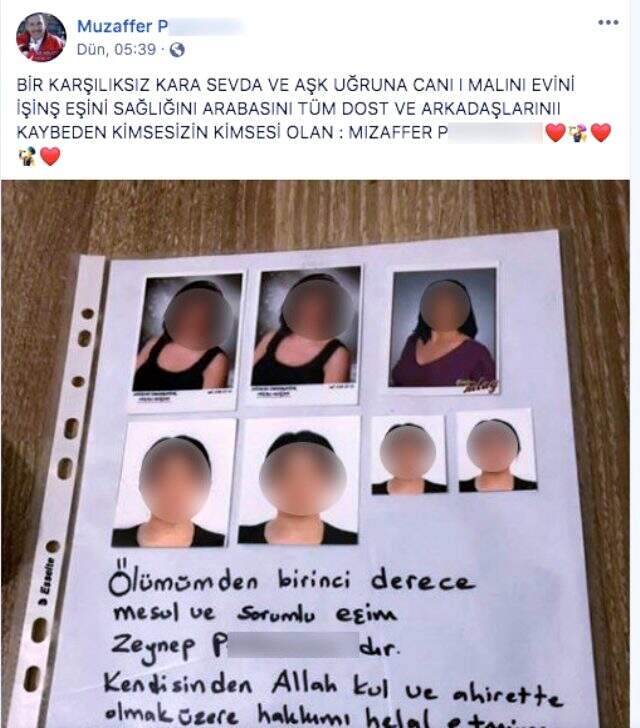 Muzaffer P
Dün, 05:39
BİR KARŞILIKSIZ KARA SEVDA VE AŞK UĞRUNA CANI I MALINI EVİNİ
İŞİNŞ EŞİNİ SAĞLIĞINI ARABASINI TÜM DOST VE ARKADAŞLARINII
KAYBEDEN KİMSESİZİN KİMSESİ OLAN : MIZAFFER P
Esselte
Ölümümden birinci derece
mesul ve sorumlu eşim
Zeynep P dır.
Kendisinden Allah kul ve ahirette
olmak üzere hakkımı helal